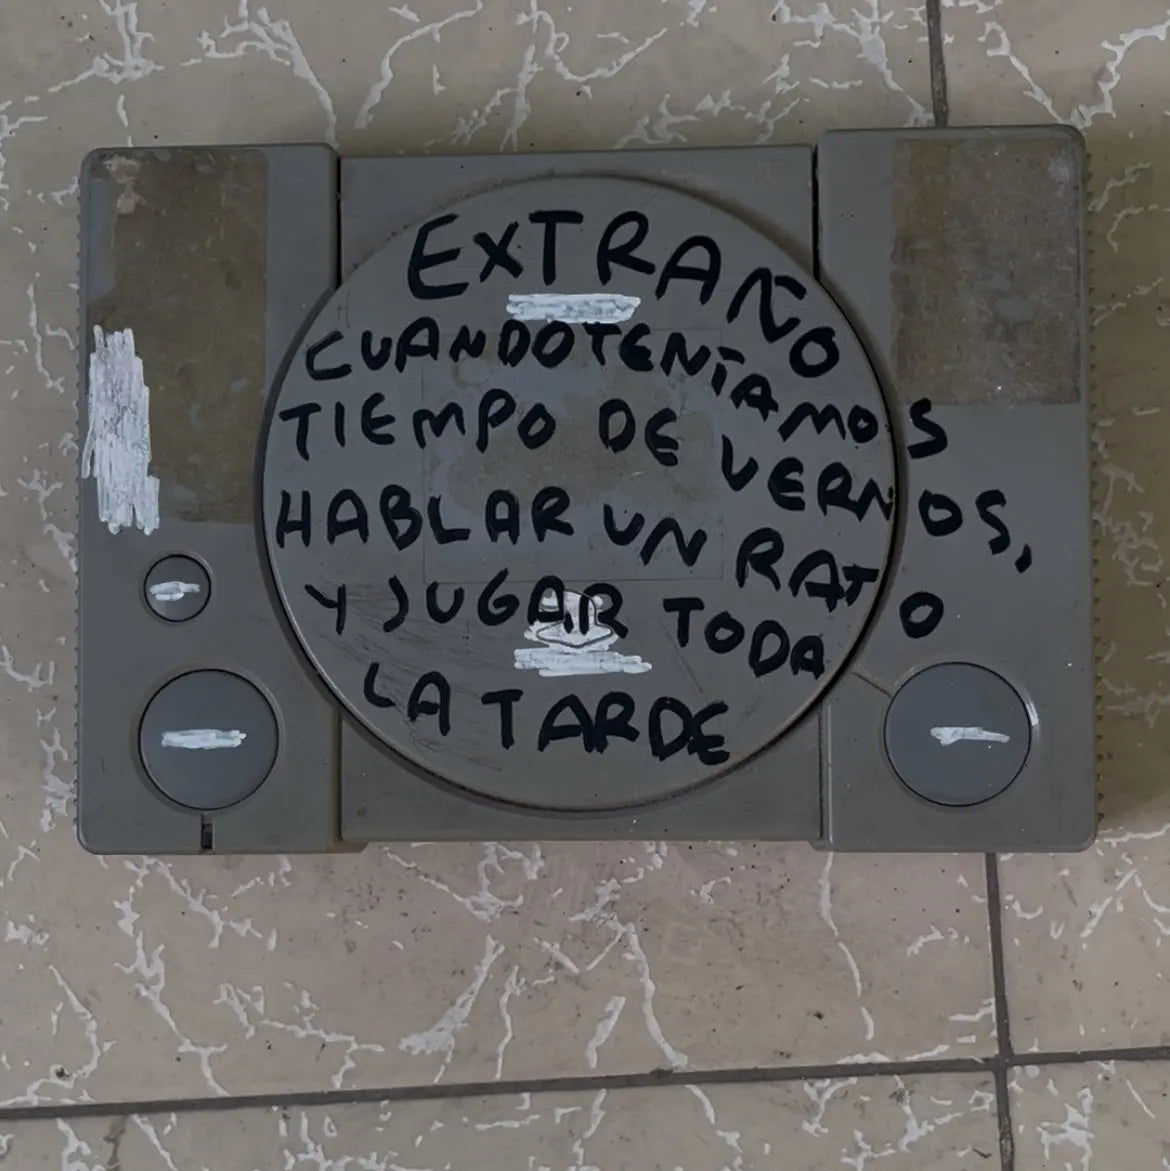 EXTRAÑO
CUANDO TENÍAMOS
TIEMPO DE VERNOS,
HABLAR UN RATO
Y JUGAR TODA
LA TARDE